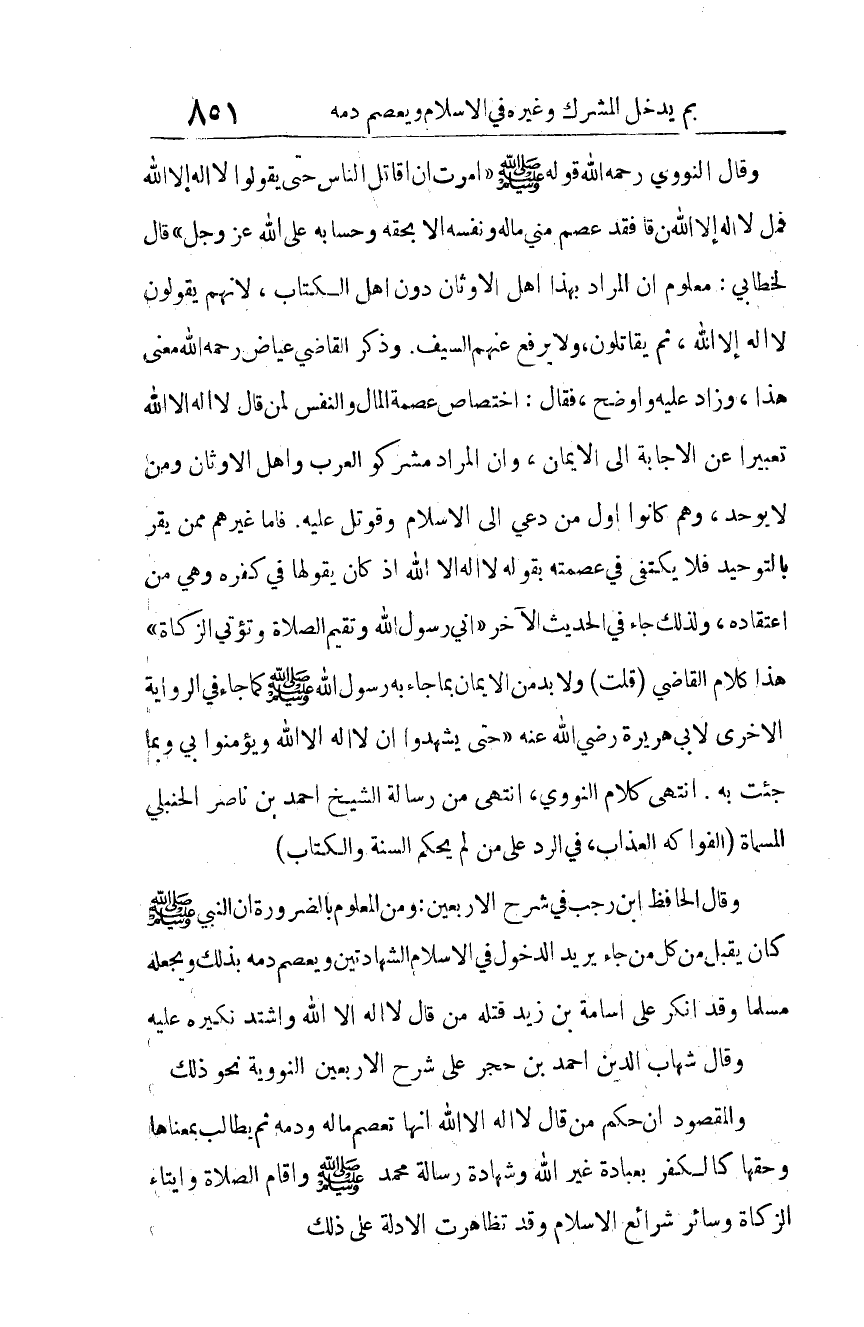 بم يدخل المشرك وغيره في الاسلام ويعصم دمه ٨٥١
وقال النووي رحمه الله قوله ﷺ «امرت ان اقاتل الناس حتى يقولوا لا اله إلا الله
فمل لا اله إلا الله ن قا فقد عصم مني ماله ونفسه الا بحقه وحسابه على الله عز وجل» قال
لخطابي : معلوم ان المراد بهذا اهل الاوثان دون اهل الكتاب ، لانهم يقولون
لا اله إلا الله ، ثم يقاتلون، ولا يرفع عنهم السيف. وذكر القاضي عياض رحمه الله معنى
هذا ، وزاد عليه واوضح ، فقال : اختصاص عصمة المال والنفس لمن قال لا اله الا الله
تعبيرا عن الاجابة الى الايمان ، وان المراد مشركو العرب واهل الاوثان ومن
لا يوحد ، وهم كانوا اول من دعي الى الاسلام وقوتل عليه. فاما غيرهم ممن يقر
بالتوحيد فلا يكتفى في عصمته بقوله لا اله الا الله اذ كان يقولها في كفره وهي من
اعتقاده ، ولذلك جاء في الحديث الآخر «اني رسول الله وتقيم الصلاة وتؤتي الزكاة»
هذا كلام القاضي (قلت) ولا بد من الايمان بما جاء به رسول الله ﷺ كما جاء في الرواية
الاخرى لابي هريرة رضي الله عنه «حتى يشهدوا ان لا اله الا الله ويؤمنوا بي وبما
جئت به . انتهى كلام النووي، انتهى من رسالة الشيخ احمد بن ناصر الحنبلي
المسماة (الفوا كه العذاب، في الرد على من لم يحكم السنة والكتاب)
وقال الحافظ ابن رجب في شرح الاربعين : ومن المعلوم بالضرورة ان النبي ﷺ
كان يقبل من كل من جاء يريد الدخول في الاسلام الشهادتين ويعصم دمه بذلك ويجعله
مسلما وقد انكر على اسامة بن زيد قتله من قال لا اله الا الله واشتد نكيره عليه
وقال شهاب الدين احمد بن حجر على شرح الاربعين النووية نحو ذلك
والمقصود ان حكم من قال لا اله الا الله انها تعصم ماله ودمه ثم يطالب بمعناها
وحقها كالكفر بعبادة غير الله وشهادة رسالة محمد ﷺ واقام الصلاة وايتاء
الزكاة وسائر شرائع الاسلام وقد تظاهرت الادلة على ذلك